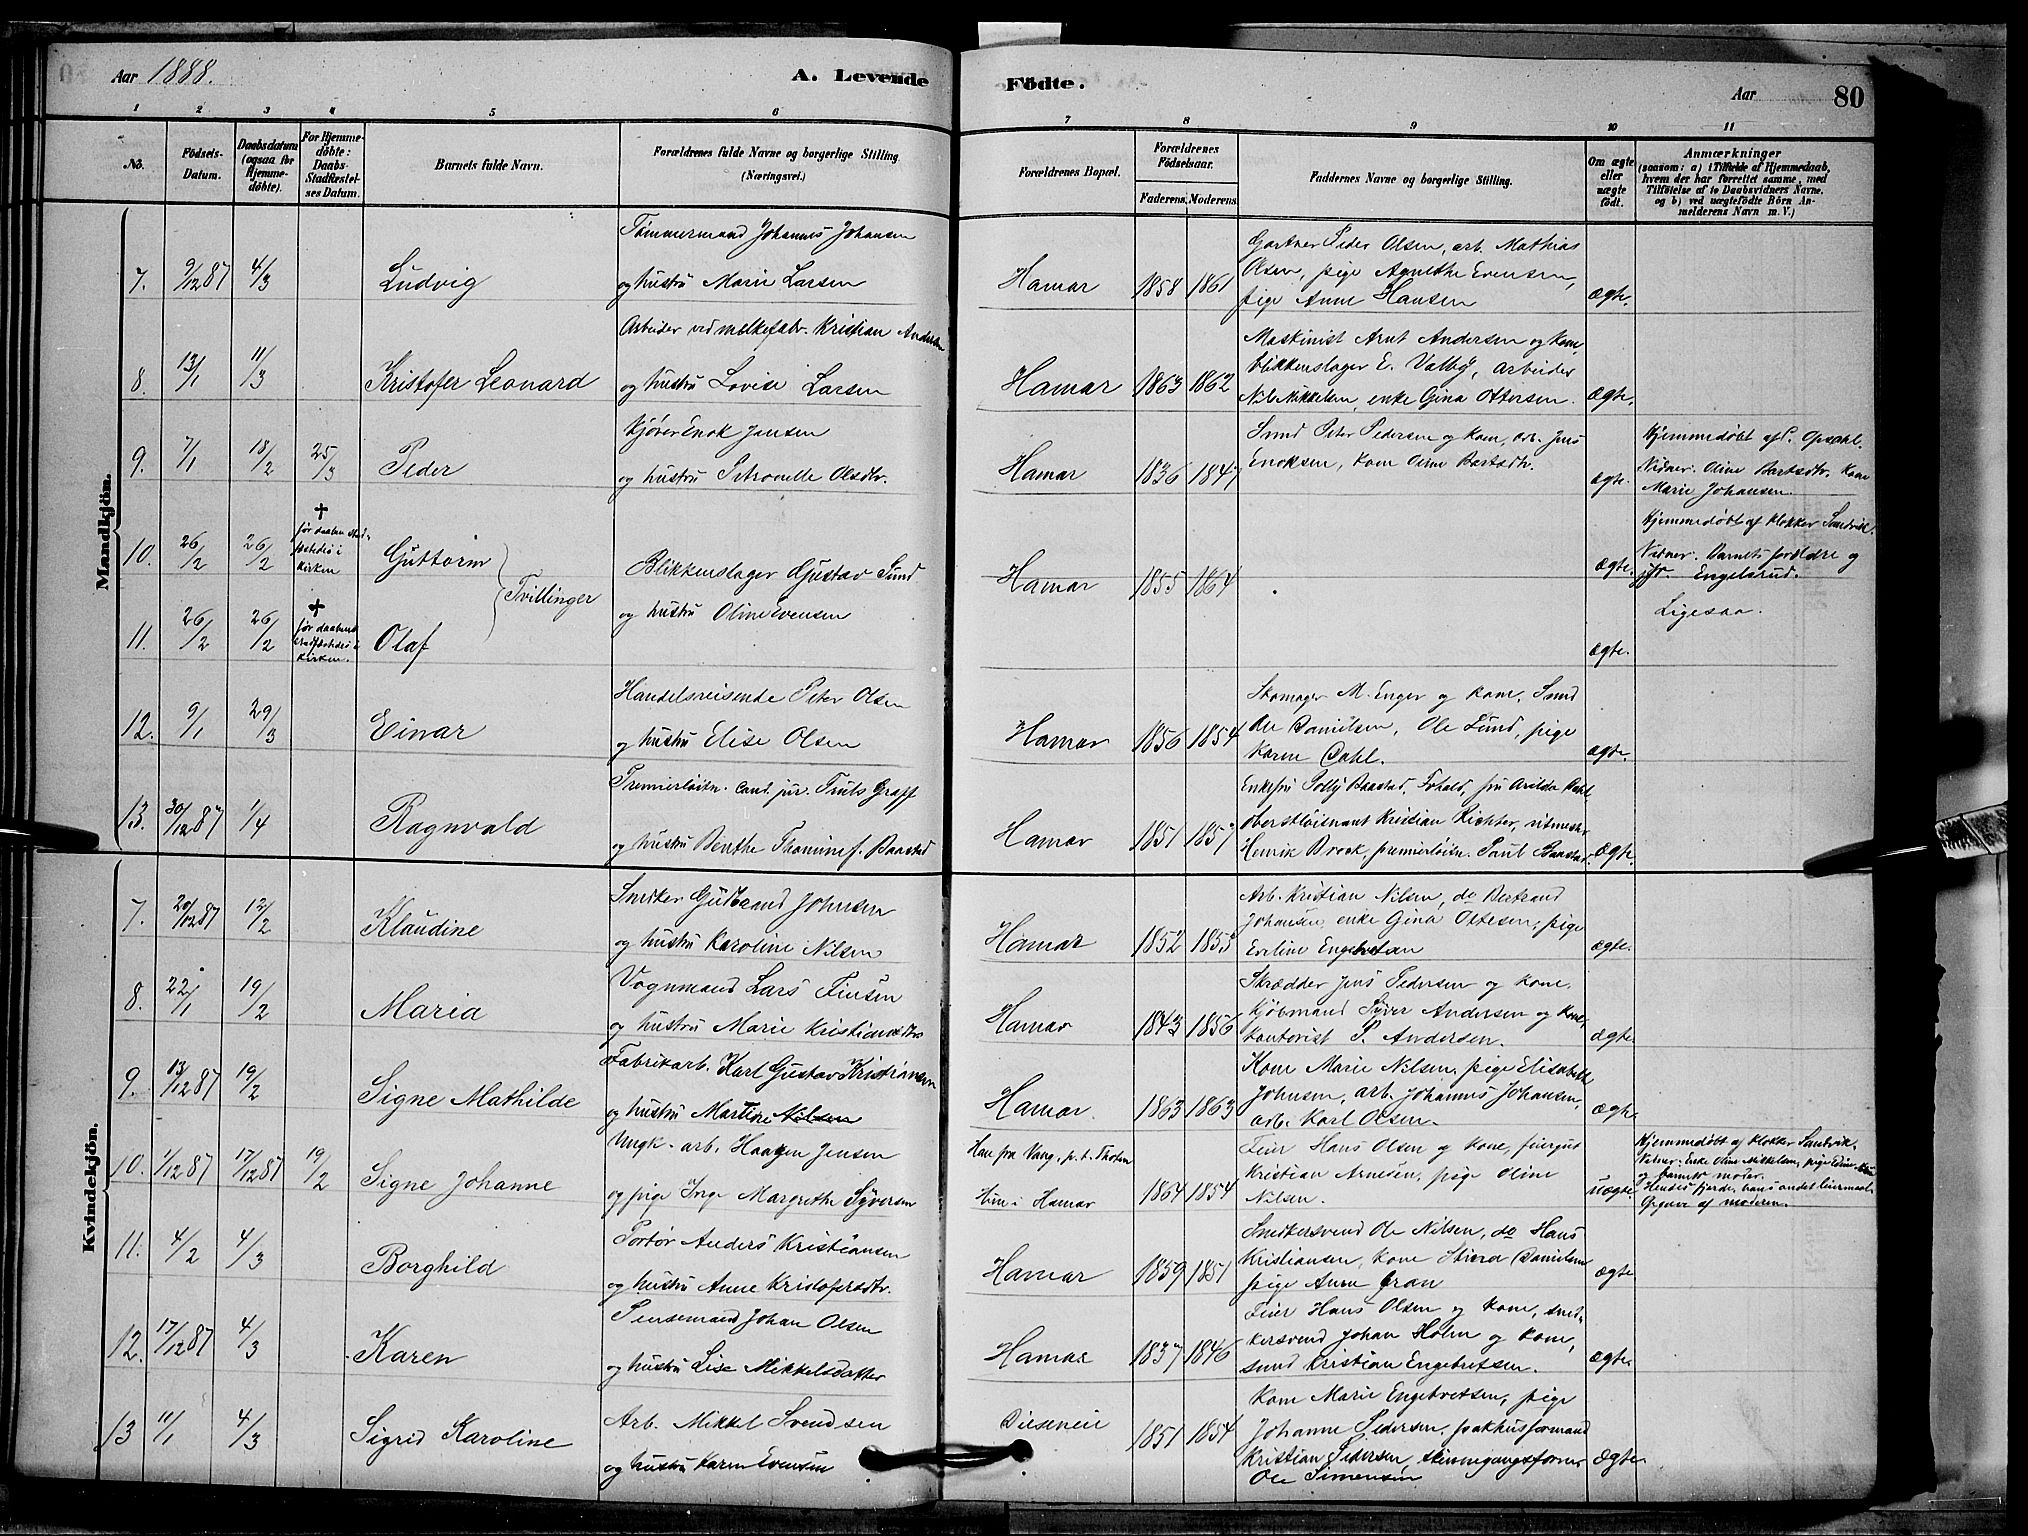 Aar 1888.
A. Levende Födte.
Aar
80
1 2 3 4 5 6 7 8 9 10 11
No.
Födsels-Datum.
Daabsdatum (ogsaa for Hjemmedöbte).
For Hjemmedöbte: Daabs-Stadfæstelses Datum.
Barnets fulde Navn.
Forældrenes fulde Navne og borgerlige Stilling (Næringsvei.)
Forældrenes Bopæl.
Forældrenes Födselsaar.
Faderens. Moderens.
Faddernes Navne og borgerlige Stilling.
Om ægte eller uægte födt.
Anmærkninger
(saasom: a) i Tilfælde af Hjemmedaab, hvem der har forrettet samme, med Tilföielse af to Daabsvidners Navne, og b) ved uægtefödte Börn Anmelderens Navn m. V.)
Mandkjön.
Tømmermand Johannes Johansen
7. 9/12 87 4/3 Ludvig og hustru Marie Larsen
Hamar 1858 1861
Gartner Peder Olsen, arb. Mathias
Olsen, pige Agnethe Evensen,
pige Anne Hansen ægte.
Arbeider ved melkefabr. Kristian Andersen
8. 13/1 11/3 Kristofer Leonard og hustru Lovise Larsen
Hamar 1863 1862
Maskinist Arnt Andersen og kone,
blikkenslager E. Valby, arbeider
Nils Mikkelsen, enke Gina Ottersen. ægte.
Kjører Enok Jensen
9. 7/1 18/2 25/3 Peder og hustru Petronelle Olsdtr.
Hamar 1836 1847
Smed Peter Pedersen og kone, arb. Jens
Enoksen, kone Oline Bartsdtr. ægte.
Hjemmedøbt af P. Opsahl.
Vidner: Oline Bartsdtr. kone
Marie Johansen.
10. 26/2 26/2 † før daaben stadfæstedes i kirken Guttorm
Tvillinger
Blikkenslager Gustav Lund
og hustru Oline Evensen
Hamar 1855 1864 ægte.
Hjemmedøbt af klokker Sandvik.
Vidner: Barnets forældre og
Engelsrud.
11. 26/2 26/2 † før daaben stadfæstedes i kirken. Olaf ægte.
Ligesaa.
Handelsreisende Peter Olsen
12. 9/1 29/3 Einar og hustru Elise Olsen
Hamar 1856 1854
Skomager M. Enger og kone, Smed
Ole Danielsen, Ole Lund, pige
Karen Dahl. ægte.
Premierløitn. cand. jur. Truls Graff
13. 30/12 87 1/4 Ragnvald og hustru Benthe Thomine f. Baastad
Hamar 1851 1857
Enkefru Polly Baastad,
oberstløitnant Kristian Richter, ritmester
Henrik Brock, premierløitn. Paul Baastad. ægte.
Kvindekjön.
Snedker Gudbrand Johnsen
7. 20/12 87 12/2 Klaudine og hustru Karoline Nilsen
Hamar 1852 1855
Arb. Kristian Nilsen, do Bertrand
Johansen, enke Gina Ottesen, pige
Eveline Engebretsen ægte.
Vognmand Lars Finsen
8. 22/1 19/2 Maria og hustru Marie Kristiansdtr
Hamar 1843 1856
Skrædder Jens Pedersen og kone,
kjøbmand Syver Andersen og kone,
kontorist P. Andersen. ægte.
Fabrikarb. Karl Gustav Kristiansen
9. 13/12 87 19/2 Signe Mathilde og hustru Martine Nilsen
Hamar. 1863 1863
Kone Marie Nilsen, pige Elisabeth
Johnsen, arb. Johannes Johansen,
arb. Karl Olsen. ægte.
Ungk. arb. Haagen Jensen
10. 1/12 87 17/12 87 19/2 Signe Johanne og pige Inge Margrethe Syversen
Han fra Vang, p. t. Thoten
Hun i Hamar 1864 1854
Feier Hans Olsen og kone, feiergut
Kristian Arnesen, pige Oline
Nilsen. uægte
Hjemmedøbt af klokker Sandvik.
Vidner: Enke Oline Mikkelsen, pige
og barnets moder.
Hendes fjerde, hans andet leiermaal.
Opgave af moderen.
Portør Anders Kristiansen
11. 4/2 4/3 Borghild og hustru Anne Kristofersdtr.
Hamar 1859 1851
Snedkersvend Ole Nilsen, do Hans
Kristiansen, kone Danielsen
pige Anne Gran ægte
Pensemand Johan Olsen
12. 17/12 87 4/3 Karen og hustru Lise Mikkelsdatter
Hamar 1837 1846
Feier Hans Olsen og kone, snedkersvend Johan Holm og kone,
smed Kristian Engebretsen. ægte
Arb. Mikkel Svendsen
13 11/1 4/3 Sigrid Karoline og hustru Karen Evensen
1851 1854
Kone Marie Engebretsen, pige
Johanne Pedersen, pakhusformand
Kristian Pedersen,
Ole Simensen ægte